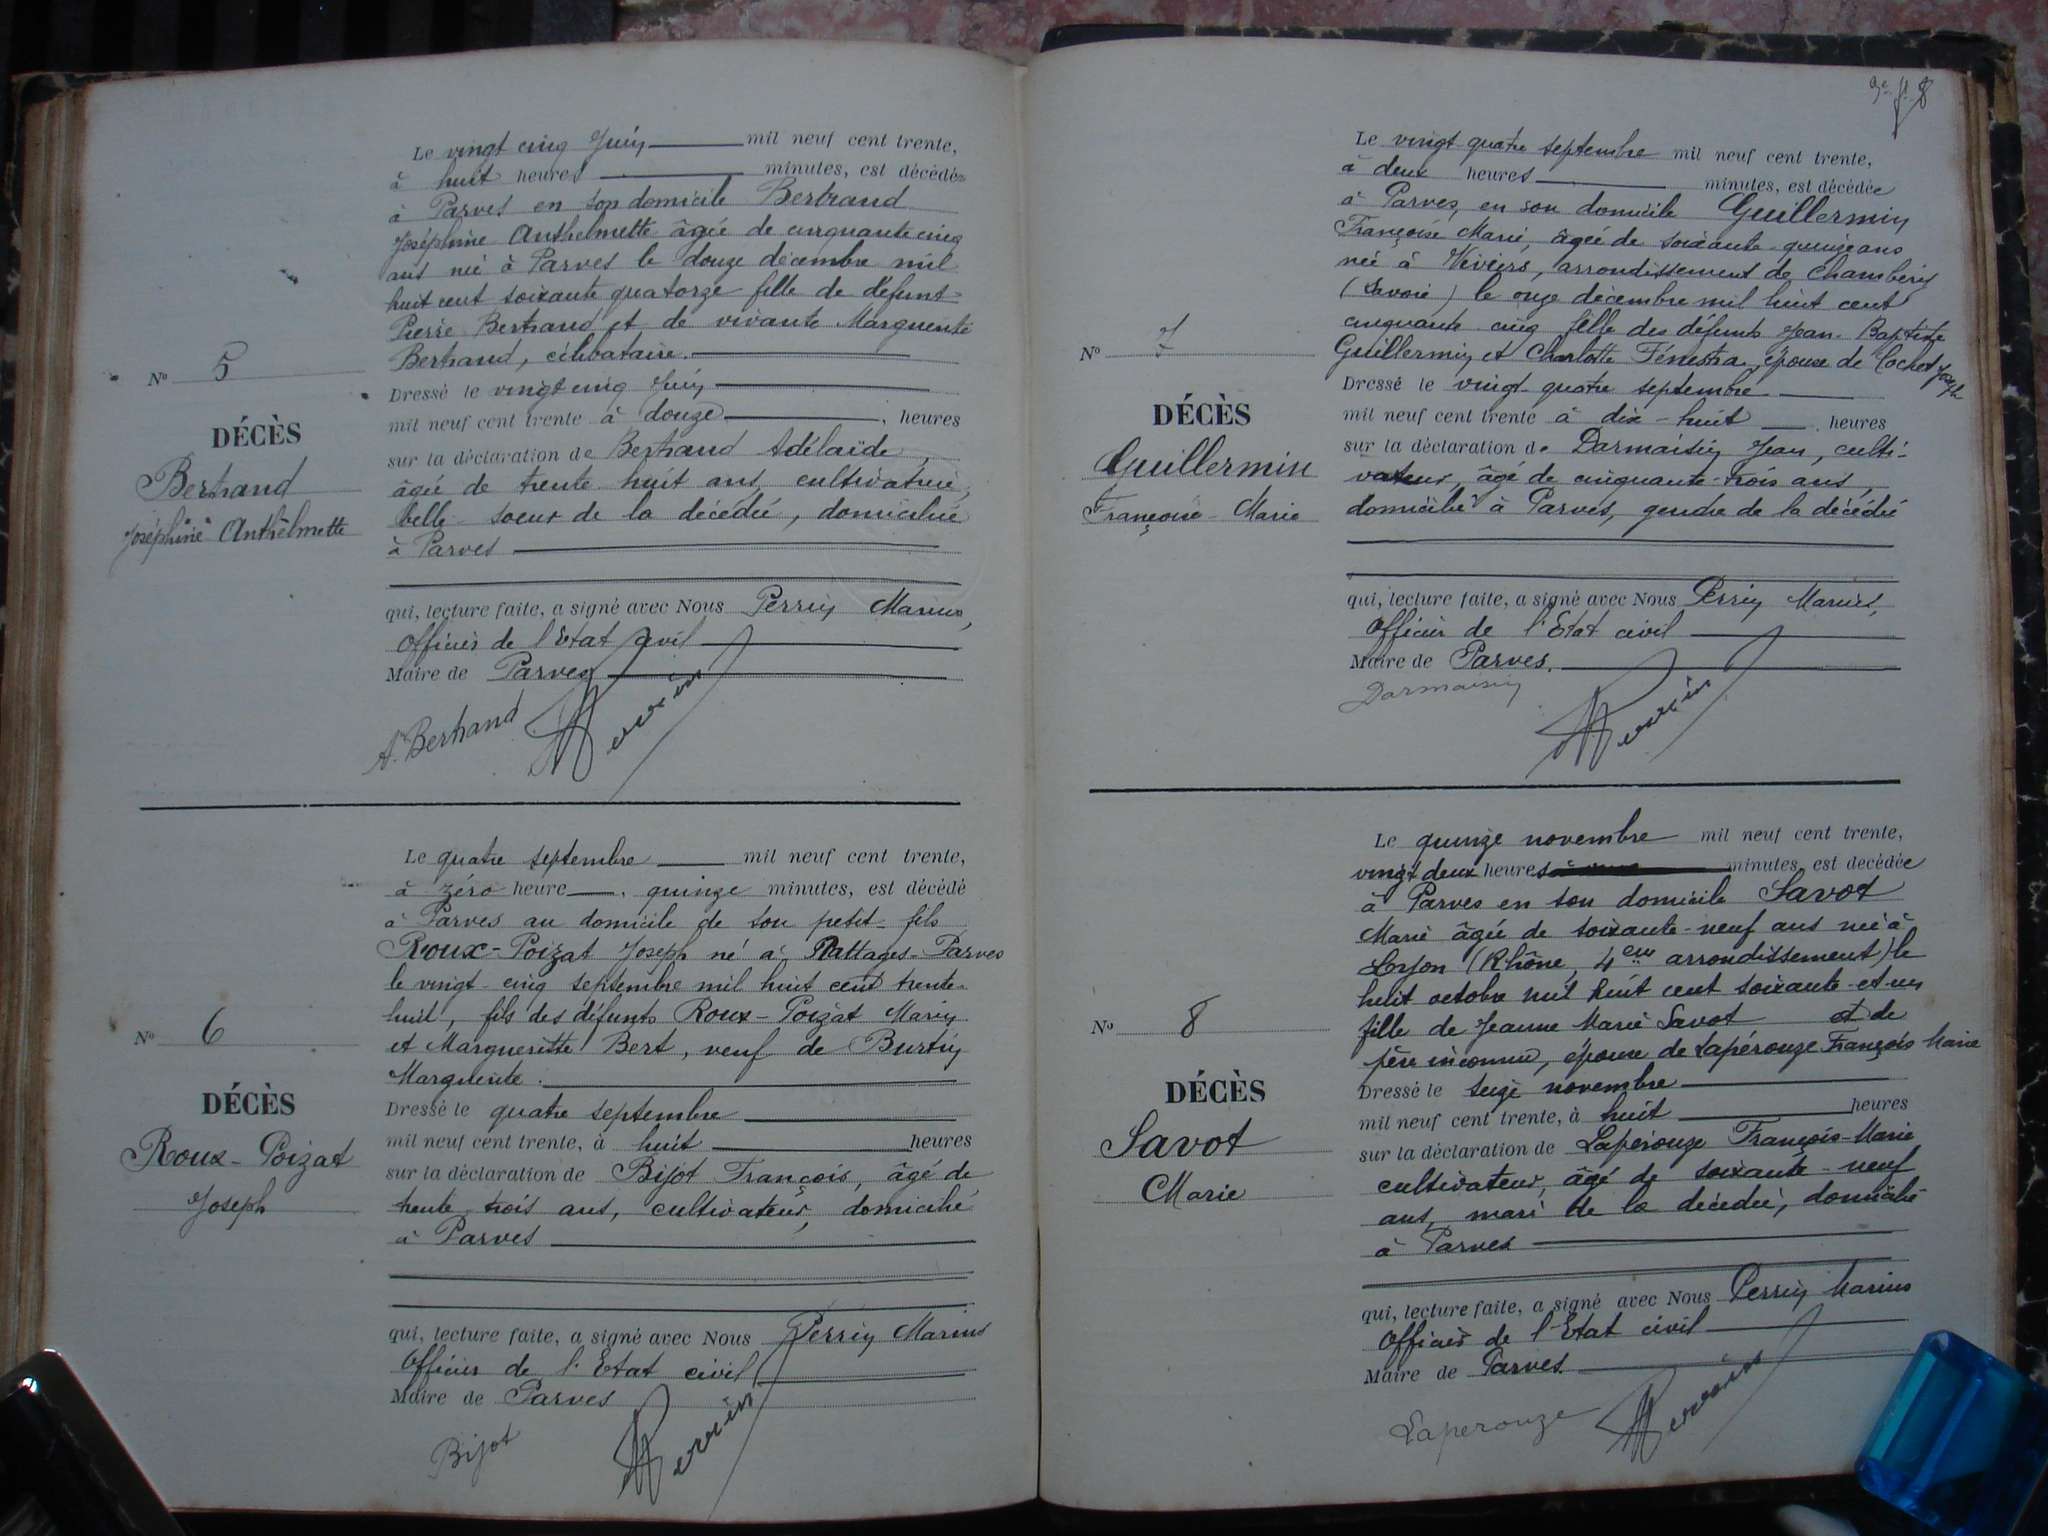 N° 5
DÉCÈS
Bertrand
Joséphine Anthelmette
Le vingt cinq Juin mil neuf cent trente,
à huit heures minutes, est décédée
à Parves en son domicile Bertrand
Joséphine Anthelmette âgée de cinquante cinq
ans née à Parves le douze décembre mil
huit cent soixante quatorze fille de défunt
Pierre Bertrand et de vivante Marguerite
Bertrand, célibataire.
Dressé le vingt cinq Juin
mil neuf cent trente à douze, heures
sur la déclaration de Bertrand Adélaïde,
âgée de trente huit ans, cultivatrice,
belle-soeur de la décédée, domiciliée
à Parves
qui, lecture faite, a signé avec Nous Perrin Marius,
Officier de l'Etat civil
Maire de Parves
A. Bertrand Perrin
N° 6
DÉCÈS
Roux-Poizat
Joseph
Le quatre septembre mil neuf cent trente,
à zéro heure quinze minutes, est décédé
à Parves au domicile de son petit-fils
Roux-Poizat Joseph né à Nattages-Parves
le vingt-cinq septembre mil huit cent trente-
huit, fils des défunts Roux-Poizat Marin
et Margueritte Bert, veuf de Burtin
Marguerite.
Dressé le quatre septembre
mil neuf cent trente, à huit heures
sur la déclaration de Bijot François, âgé de
trente trois ans, cultivateur, domicilié
à Parves
qui, lecture faite, a signé avec Nous Perrin Marius
Officier de l'Etat civil
Maire de Parves
Bijot Perrin
8
N° 7
DÉCÈS
Guillermin
Françoise-Marie
Le vingt quatre septembre mil neuf cent trente,
à deux heures minutes, est décédée
à Parves, en son domicile Guillermin
Françoise Marie, âgée de soixante-quinze ans
née à Viviers, arrondissement de Chambéry
(Savoie) le onze décembre mil huit cent
cinquante-cinq fille des défunts Jean-Baptiste
Guillermin et Charlotte Fénestra, épouse de Cochet Joseph
Dressé le vingt-quatre septembre
mil neuf cent trente à dix-huit heures
sur la déclaration de Darmaisin Jean, culti-
vateur, âgé de cinquante-trois ans,
domicilié à Parves, gendre de la décédée
qui, lecture faite, a signé avec Nous Perrin Marius,
Officier de l'Etat civil
Maire de Parves.
Darmaisin Perrin
N° 8
DÉCÈS
Savot
Marie
Le quinze novembre mil neuf cent trente,
vingt deux heures minutes, est décédée
à Parves en son domicile Savot
Marie âgée de soixante-neuf ans née à
Lyon (Rhône, 4em arrondissement) le
huit octobre mil huit cent soixante-et-un
fille de Jeanne Marie Savot et de
père inconnu, épouse de Lapérouze François Marie
Dressé le seize novembre
mil neuf cent trente, à huit heures
sur la déclaration de Lapérouze François-Marie
cultivateur, âgé de soixante-neuf
ans, mari de la décédée, domicilié
à Parves
qui, lecture faite, a signé avec Nous Perrin Marius
Officier de l'Etat civil
Maire de Parves
Laperouze Perrin